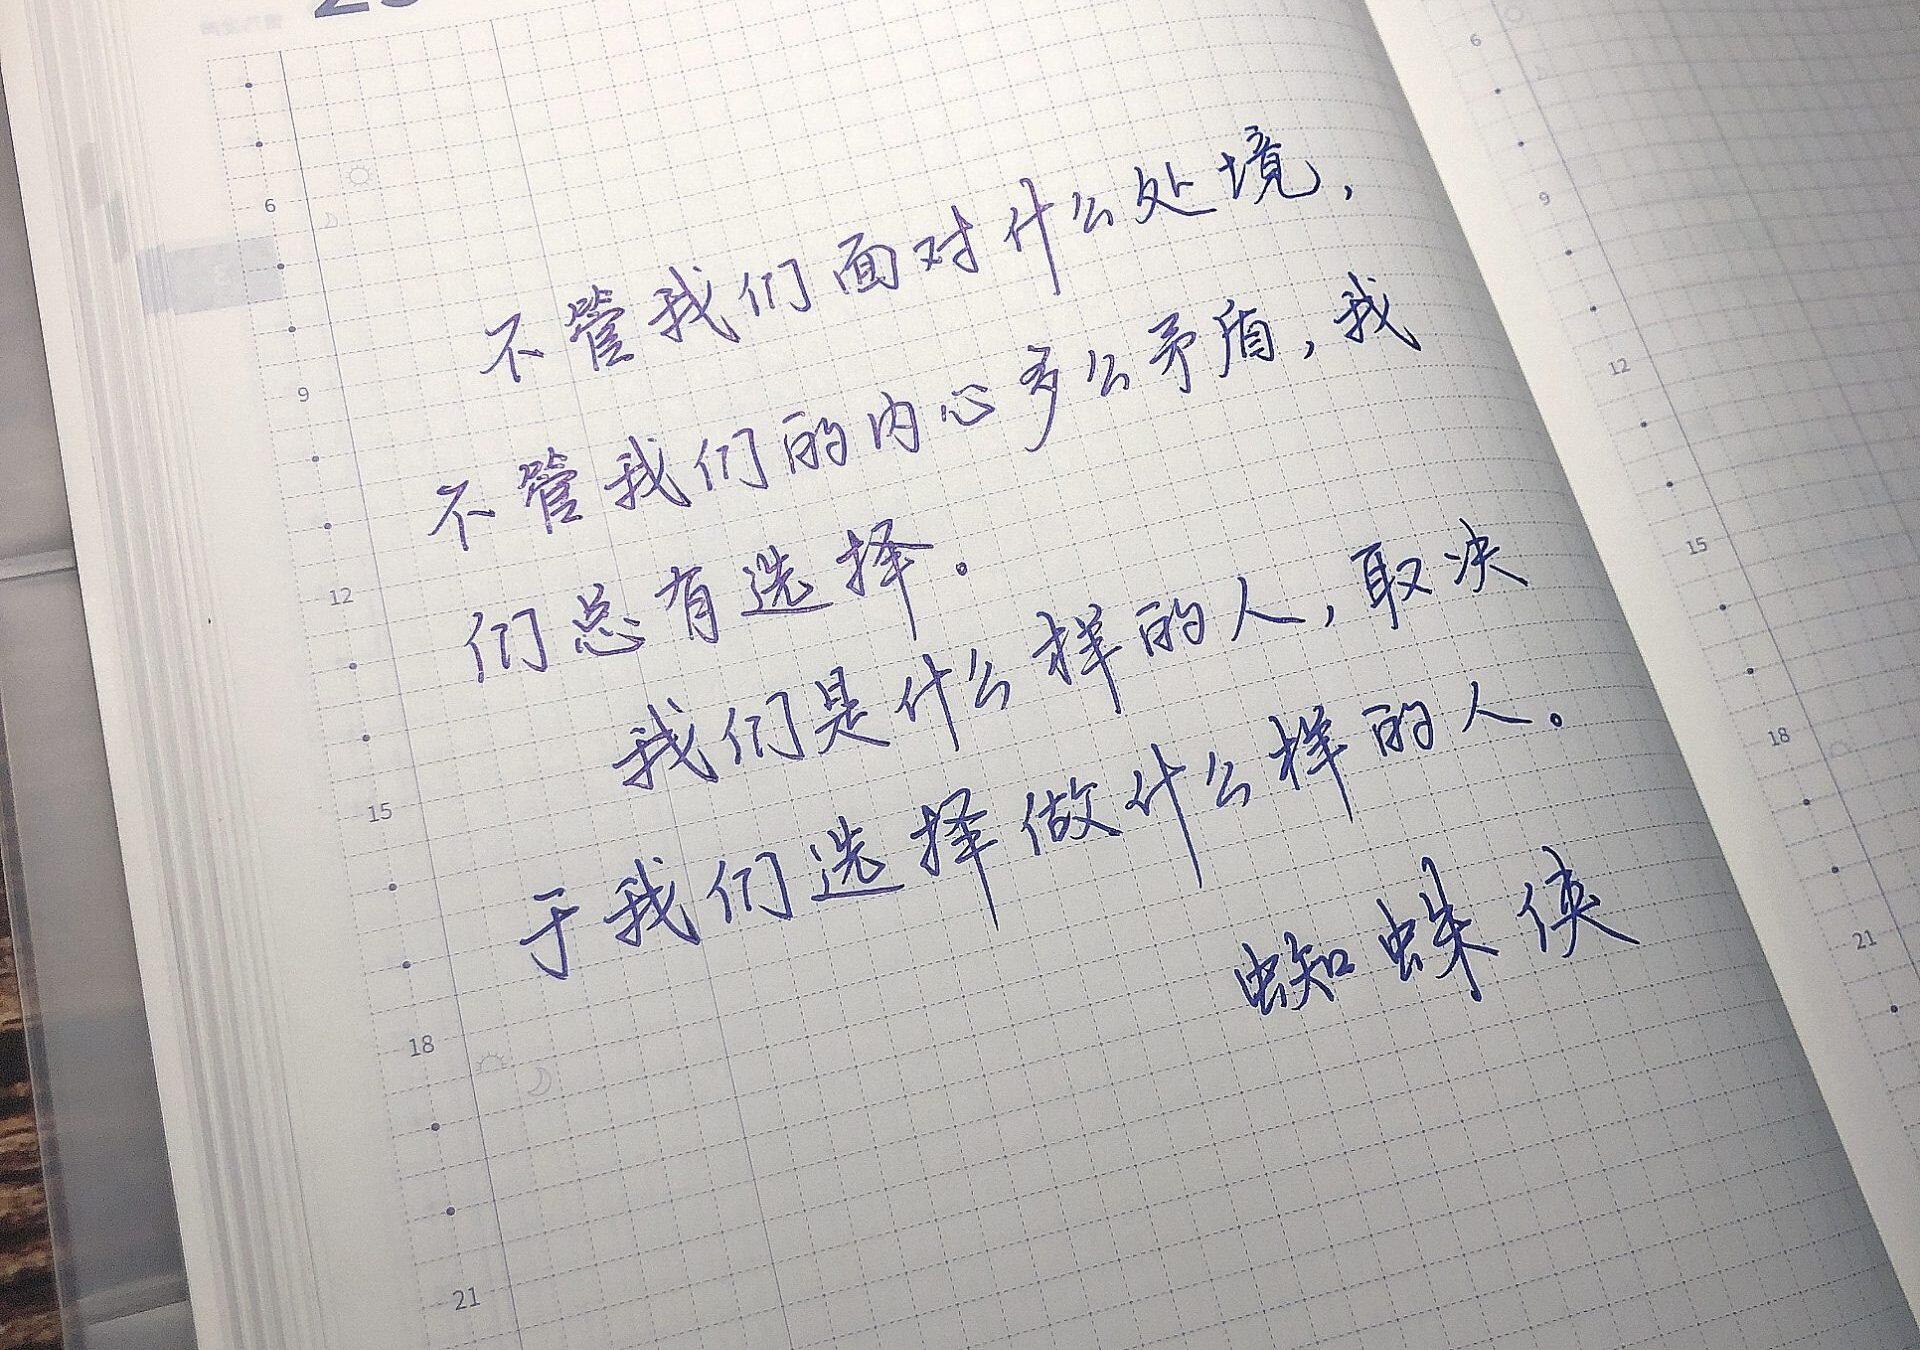 不管我们面对什么处境,
不管我们的内心多么矛盾,我
们总有选择.
我们是什么样的人,取决
于我们选择做什么样的人。
蜘蛛侠
6
9
12
15
18
21
6
9
12
15
18
21